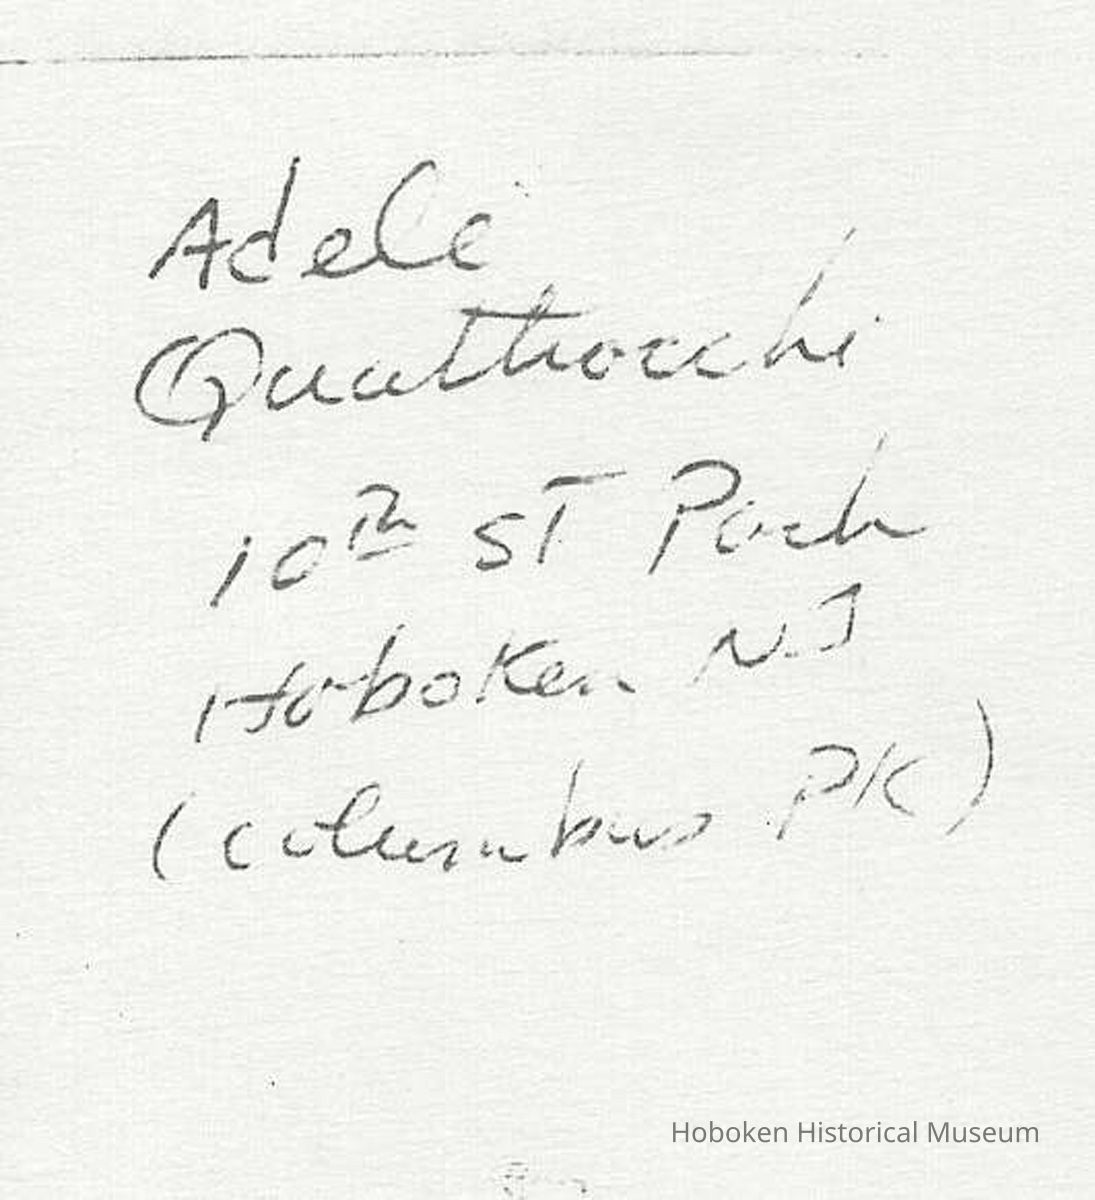 Adele
Quattrocchi
10th ST Park
Hoboken NJ
(Columbus PK)
Hoboken Historical Museum